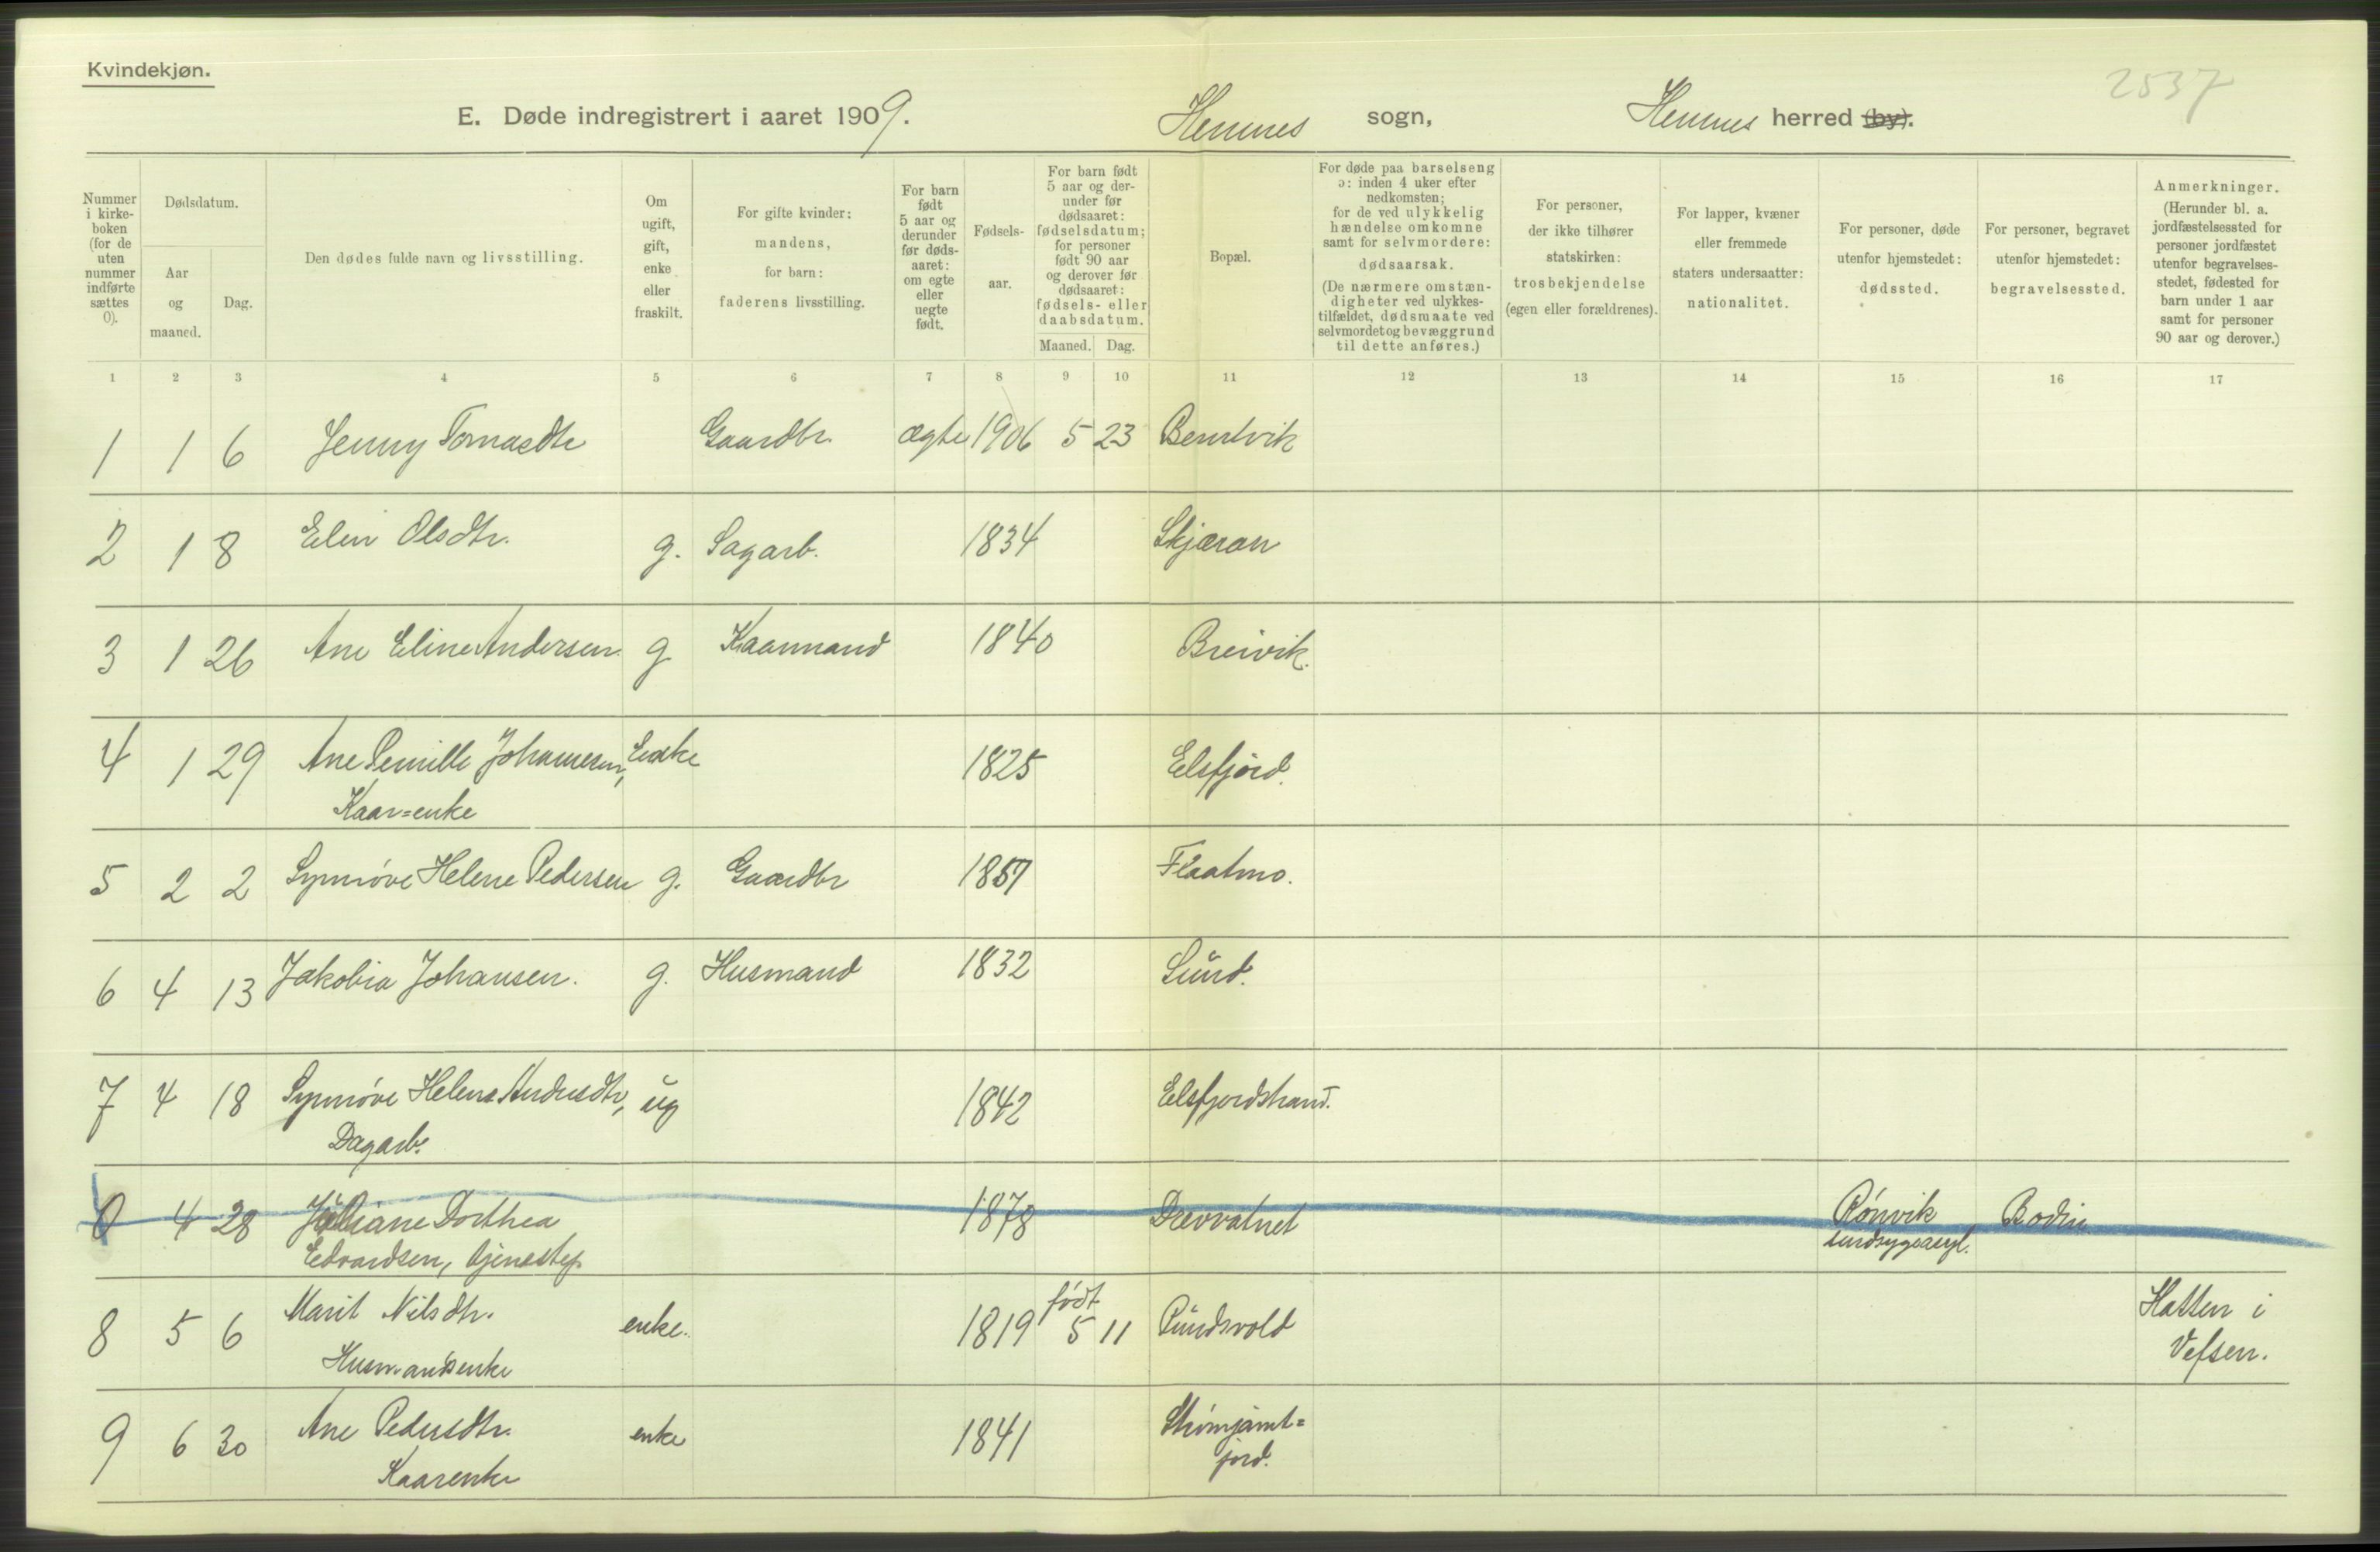 Kvindekjøn.
2537
E. Døde indregistrert i aaret 1909. Hemnes sogn, Hemnes herred (by).
Nummer i kirke-boken (for de uten nummer indførte sættes 0).
Dødsdatum.
Aar og maaned.
Dag.
Den dødes fulde navn og livsstilling.
Om ugift, gift, enke eller fraskilt.
For gifte kvinder: mandens, for barn: faderens livsstilling.
For barn født 5 aar og derunder før døds-aaret: om egte eller uegte født.
Fødsels-aar.
For barn født 5 aar og der-under før dødsaaret: fødselsdatum; for personer født 90 aar og derover før dødsaaret: fødsels- eller daabsdatum.
Maaned. Dag.
Bopæl.
For døde paa barselseng ɔ: inden 4 uker efter nedkomsten; for de ved ulykkelig hændelse omkomne samt for selvmordere: dødsaarsak.
(De nærmere omstæn-digheter ved ulykkes-tilfældet, dødsmaate ved selvmordet og bevæggrund til dette anføres.)
For personer, der ikke tilhører statskirken: trosbekjendelse (egen eller forældrenes).
For lapper, kvæner eller fremmede staters undersaatter: nationalitet.
For personer, døde utenfor hjemstedet: dødssted.
For personer, begravet utenfor hjemstedet: begravelsessted.
Anmerkninger.
(Herunder bl. a. jordfæstelsessted for personer jordfæstet utenfor begravelses-stedet, fødested for barn under 1 aar samt for personer 90 aar og derover.)
1 2 3 4 5 6 7 8 9 10 11 12 13 14 15 16 17
1 1 6 Jenny Tomasdtr Gaardbr. ægte 1906 5 23
2 1 8 Elen Olsdtr. g. Sagarb. 1834 Skjæran
3 1 26 Ane Eline Andersen g Kaarmand 1840 Breivik.
4 1 29 Ane Pernille Johannesen, Enke 1825 Elsfjord.
Kaar=enke
5 2 2 Synnøve Helene Pedersen g. Gaardbr 1857 Flaatmo.
6 4 13 Jakobia Johansen. g. Husmand 1832 Sund.
7 4 18 Synnøve Helene Andersdtr, ug 1842 Elsfjordstrand.
Dagarb.
0 4 28 Juliane Dorthea 1878 Drevvatnet Rønvik Bodin
Edvardsen, tjenestep. sindsygeasyl.
8 5 6 Marit Nilsdtr. enke. 1819 født 5 11 Pundsvold Hatten i
Husmandsenke Vefsen.
9 6 30 Ane Pedersdtr. enke 1841
Kaarenke jord.